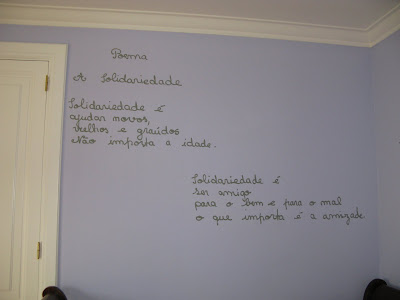 Poema
A Solidariedade
Solidariedade é
ajudar novos,
velhos e graúdos
Não importa a idade.
Solidariedade é
ser amigo
para o bem e para o mal
o que importa é a amizade